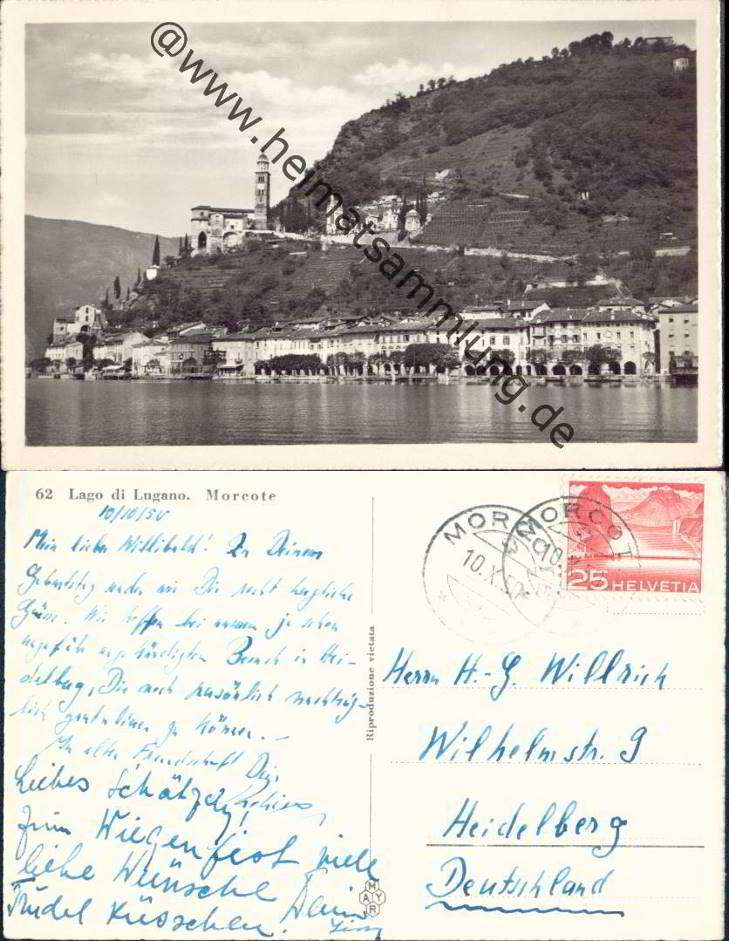 @www.heimatsammlung.de
62 Lago di Lugano. Morcote
10/10/54
Mein lieber Willibald! Zu Deinem
Geburtstag senden wir Dir recht herzliche
Grüsse. Wir hoffen bei unserem ja schon
ungefähr angekündigten Besuch in Hei-
delberg, Dir noch persönlich nachträg-
lich gratulieren zu können. –
In alter Freundschaft Dein
Liebes Schätzchen!
zum Wiegenfest viele
liebe Wünsche
Küsschen.
Riproduzione vietata
MAYR
MORCOTE
10.X.
MORCOTE
10.
25 HELVETIA
Herrn H.-G. Willrich
Wilhelmstr. 9
Heidelberg
Deutschland